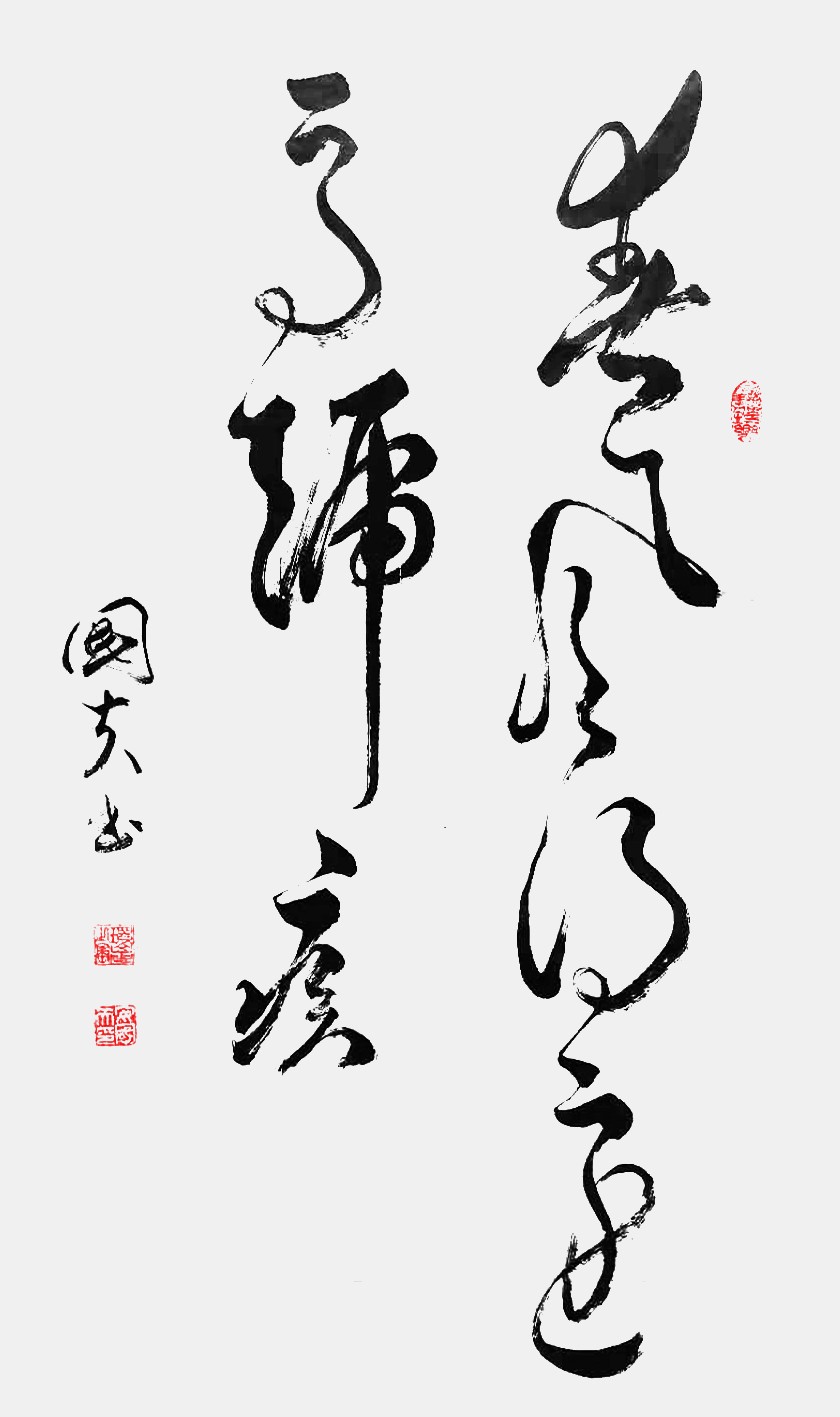 春風得意
馬蹄疾
國夫书